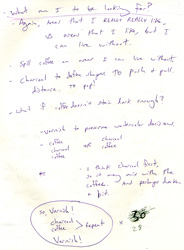 What am I to be looking for?
- Again, news that I REALLY REALLY LIKE,
vs news that I like, but I
can live without.
- Spill coffee on news I can live without.
- Charcoal to define shapes TO push & pull,
distance. TO pop!
- What if coffee doesn't stain dark enough?
- varnish to preserve watercolor decisions.
- coffee charcoal
charcoal or coffee
coffee charcoal
* I think charcoal first,
so it may mix with the
coffee. And perhaps darken
a bit.
So, Varnish!
charcoal
coffee > repeat
Varnish!
x 30
28